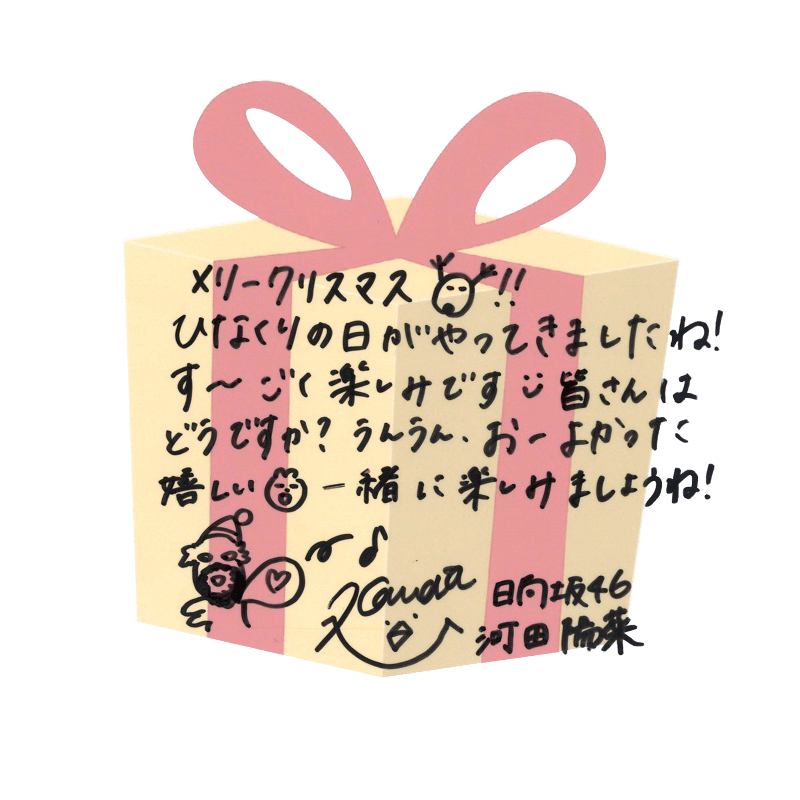 メリークリスマス!!
ひなくりの日がやってきましたね!
す〜ごく楽しみです 皆さんは
どうですか?うんうん、おーよかった
嬉しい 一緒に楽しみましょうね!
Kawata
日向坂46
河田陽菜